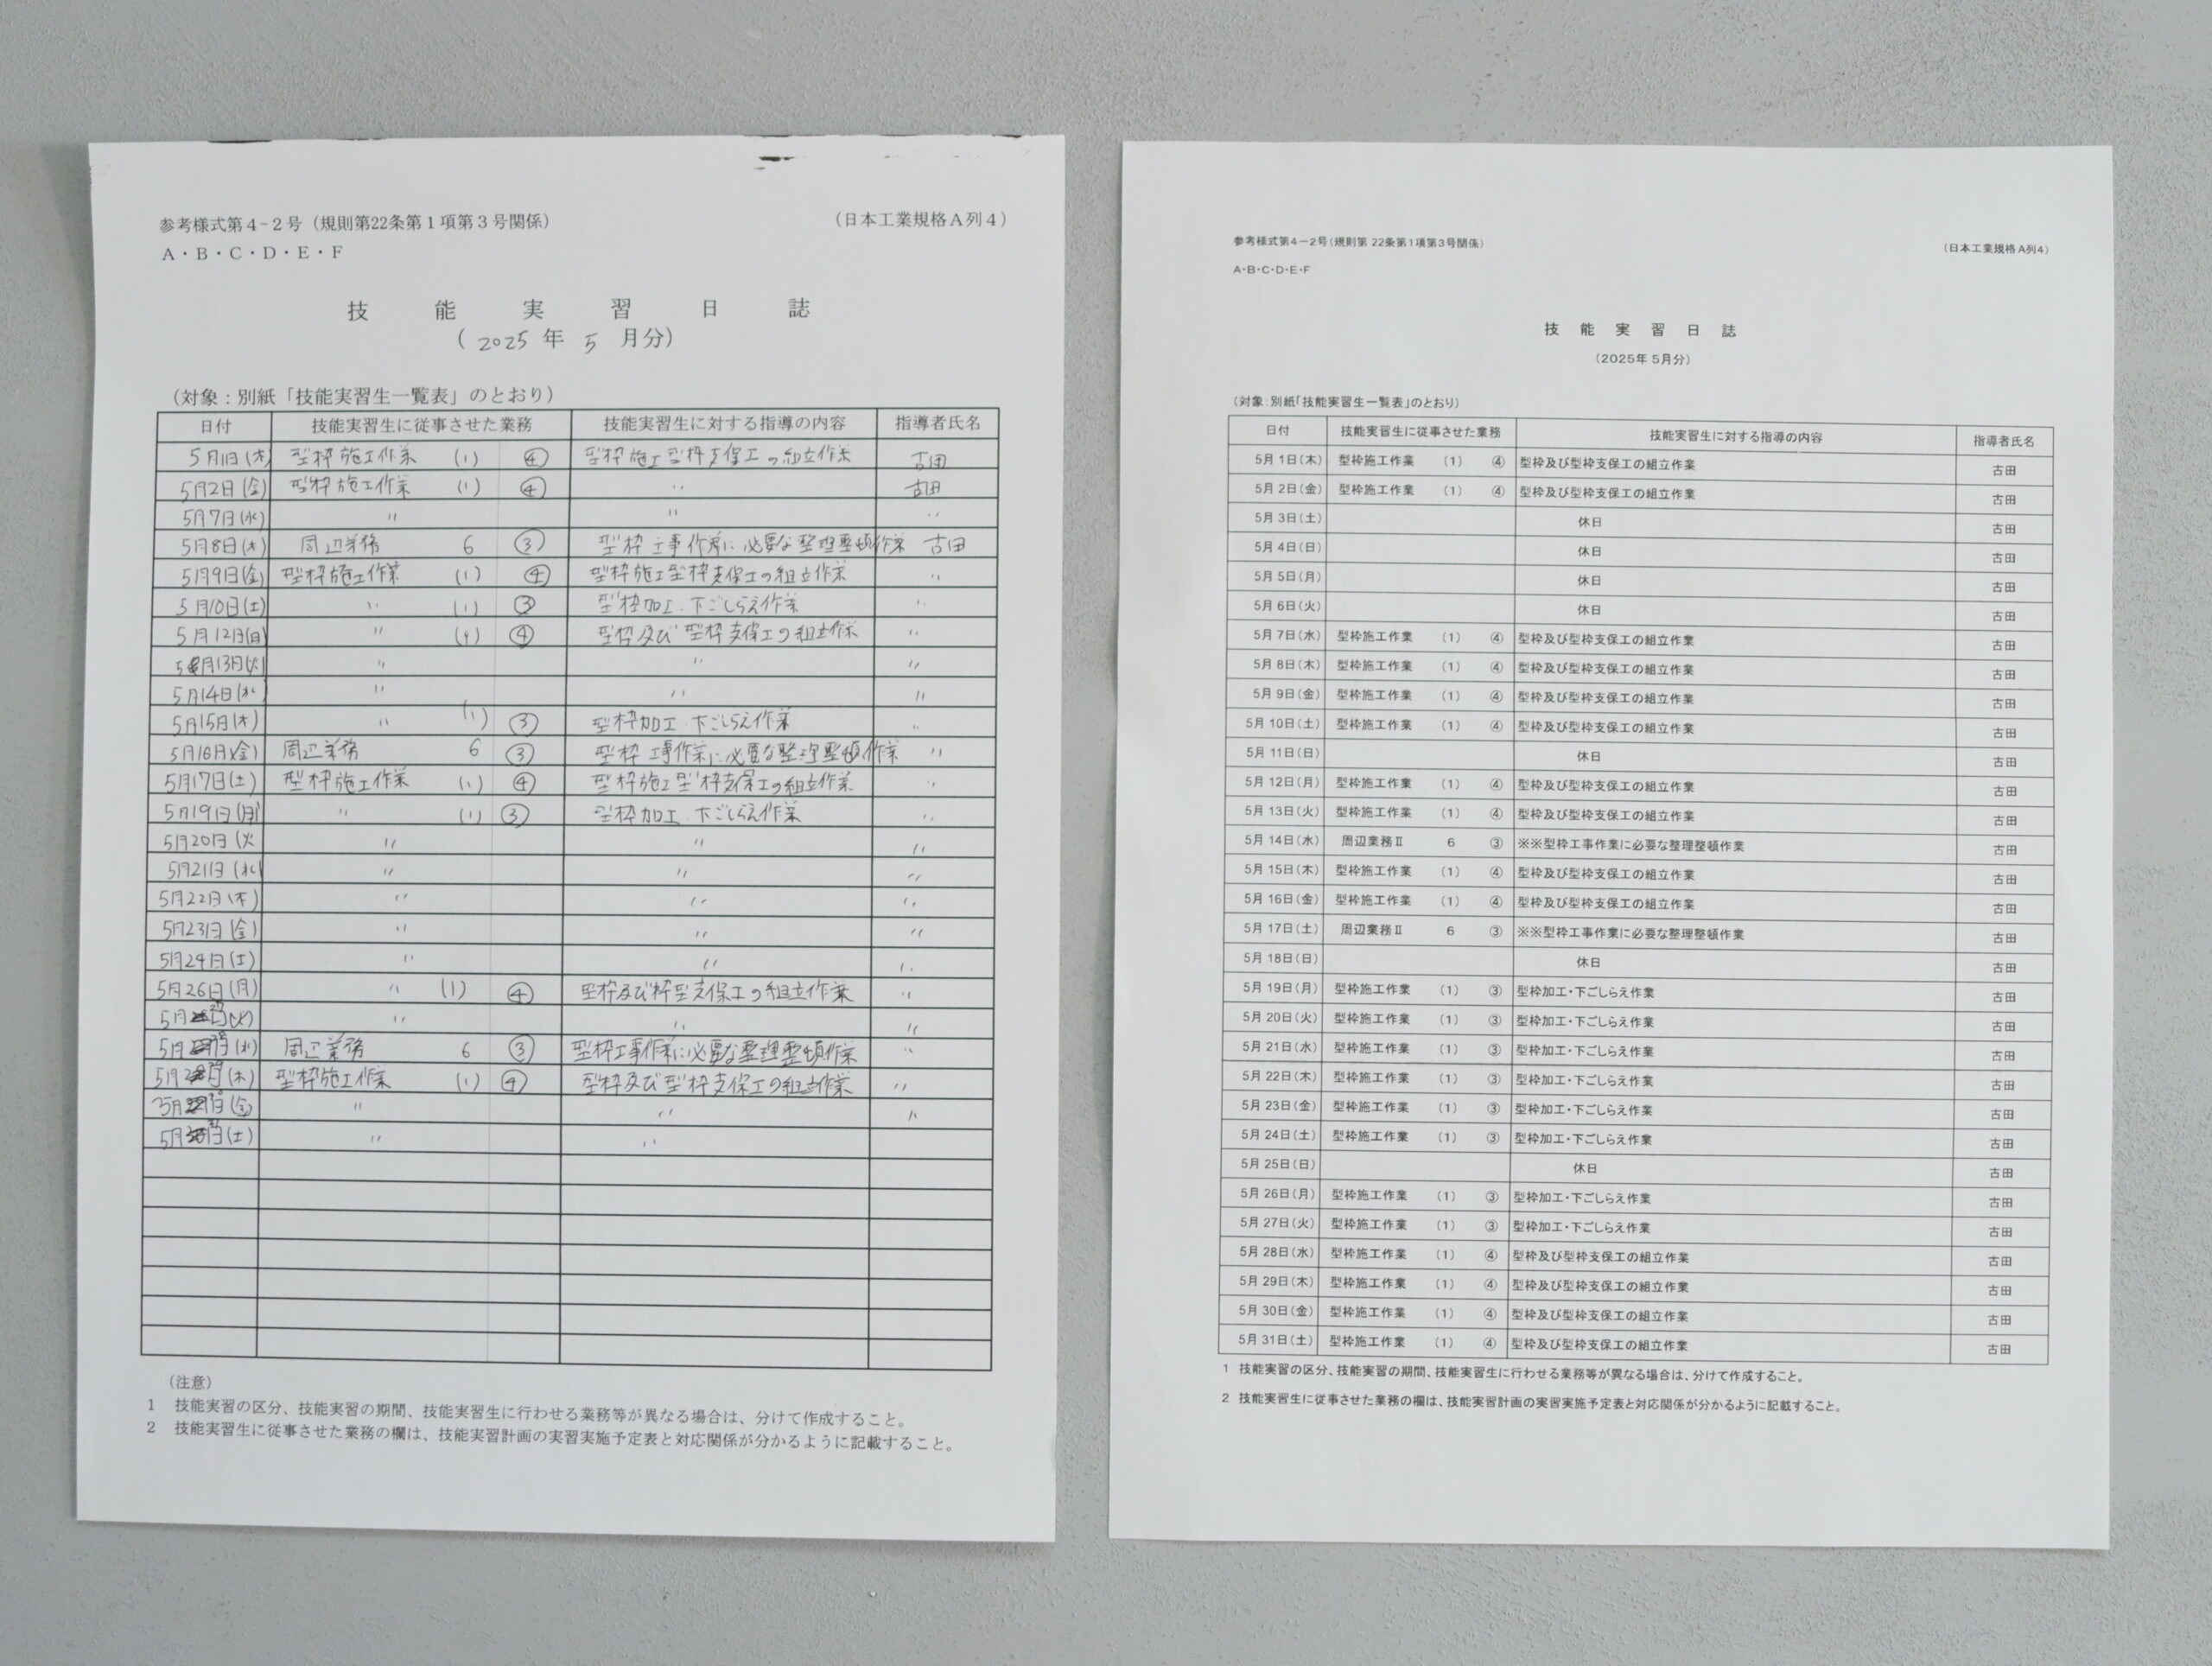 参考様式第４−２号（規則第22条第１項第３号関係）
（日本工業規格Ａ列４）
Ａ・Ｂ・Ｃ・Ｄ・Ｅ・Ｆ
技能実習日誌
（2025年5月分）
（対象：別紙「技能実習生一覧表」のとおり）
日付 技能実習生に従事させた業務 技能実習生に対する指導の内容 指導者氏名
5月1日(木) 型枠施工作業 (1) ④ 型枠施工型枠支保工の組立作業 古田
5月2日(金) 型枠施工作業 (1) ④ 〃 古田
5月7日(水) 〃 〃 〃
5月8日(木) 周辺業務 6 ③ 型枠工事作業に必要な整理整頓作業 古田
5月9日(金) 型枠施工作業 (1) ④ 型枠施工型枠支保工の組立作業 〃
5月10日(土) 〃 (1) ③ 型枠加工.下ごしらえ作業 〃
5月12日(日) 〃 ④ 型枠及び型枠支保工の組立作業 〃
5月13日(火) 〃 〃 〃
5月14日(水) 〃 〃 〃
5月15日(木) 〃 (1) ③ 型枠加工.下ごしらえ作業 〃
5月16日(金) 周辺業務 6 ③ 型枠工事作業に必要な整理整頓作業 〃
5月17日(土) 型枠施工作業 (1) ④ 型枠施工型枠支保工の組立作業 〃
5月19日(月) 〃 (1) ③ 型枠加工.下ごしらえ作業 〃
5月20日(火 〃 〃 〃
5月21日(水 〃 〃 〃
5月22日(木) 〃 〃 〃
5月23日(金) 〃 〃 〃
5月24日(土) 〃 〃 〃
5月26日(月) 〃 (1) ④ 型枠及び枠型支保工の組立作業 〃
(火) 〃 〃 〃
(水) 周辺業務 6 ③ 型枠工事作業に必要な整理整頓作業 〃
(木) 型枠施工作業 (1) ④ 型枠及び型枠支保工の組立作業 〃
(金) 〃 〃 〃
(土) 〃 〃
（注意）
1 技能実習の区分、技能実習の期間、技能実習生に行わせる業務等が異なる場合は、分けて作成すること。
2 技能実習生に従事させた業務の欄は、技能実習計画の実習実施予定表と対応関係が分かるように記載すること。
参考様式第4−2号（規則第 22条第1項第3号関係）
（日本工業規格A列4）
A・B・C・D・E・F
技能実習日誌
（2025年 5月分）
（対象：別紙「技能実習生一覧表」のとおり）
日付 技能実習生に従事させた業務 技能実習生に対する指導の内容 指導者氏名
5月 1日（木） 型枠施工作業 （1） ④ 型枠及び型枠支保工の組立作業 古田
5月 2日（金） 型枠施工作業 （1） ④ 型枠及び型枠支保工の組立作業 古田
5月 3日（土） 休日 古田
5月 4日（日） 休日 古田
5月 5日（月） 休日 古田
5月 6日（火） 休日 古田
5月 7日（水） 型枠施工作業 （1） ④ 型枠及び型枠支保工の組立作業 古田
5月 8日（木） 型枠施工作業 （1） ④ 型枠及び型枠支保工の組立作業 古田
5月 9日（金） 型枠施工作業 （1） ④ 型枠及び型枠支保工の組立作業 古田
5月 10日（土） 型枠施工作業 （1） ④ 型枠及び型枠支保工の組立作業 古田
5月 11日（日） 休日 古田
5月 12日（月） 型枠施工作業 （1） ④ 型枠及び型枠支保工の組立作業 古田
5月 13日（火） 型枠施工作業 （1） ④ 型枠及び型枠支保工の組立作業 古田
5月 14日（水） 周辺業務Ⅱ 6 ③ ※※型枠工事作業に必要な整理整頓作業 古田
5月 15日（木） 型枠施工作業 （1） ④ 型枠及び型枠支保工の組立作業 古田
5月 16日（金） 型枠施工作業 （1） ④ 型枠及び型枠支保工の組立作業 古田
5月 17日（土） 周辺業務Ⅱ 6 ③ ※※型枠工事作業に必要な整理整頓作業 古田
5月 18日（日） 休日 古田
5月 19日（月） 型枠施工作業 （1） ③ 型枠加工・下ごしらえ作業 古田
5月 20日（火） 型枠施工作業 （1） ③ 型枠加工・下ごしらえ作業 古田
5月 21日（水） 型枠施工作業 （1） ③ 型枠加工・下ごしらえ作業 古田
5月 22日（木） 型枠施工作業 （1） ③ 型枠加工・下ごしらえ作業 古田
5月 23日（金） 型枠施工作業 （1） ③ 型枠加工・下ごしらえ作業 古田
5月 24日（土） 型枠施工作業 （1） ③ 型枠加工・下ごしらえ作業 古田
5月 25日（日） 休日 古田
5月 26日（月） 型枠施工作業 （1） ③ 型枠加工・下ごしらえ作業 古田
5月 27日（火） 型枠施工作業 （1） ③ 型枠加工・下ごしらえ作業 古田
5月 28日（水） 型枠施工作業 （1） ④ 型枠及び型枠支保工の組立作業 古田
5月 29日（木） 型枠施工作業 （1） ④ 型枠及び型枠支保工の組立作業 古田
5月 30日（金） 型枠施工作業 （1） ④ 型枠及び型枠支保工の組立作業 古田
5月 31日（土） 型枠施工作業 （1） ④ 型枠及び型枠支保工の組立作業 古田
1 技能実習の区分、技能実習の期間、技能実習生に行わせる業務等が異なる場合は、分けて作成すること。
2 技能実習生に従事させた業務の欄は、技能実習計画の実習実施予定表と対応関係が分かるように記載すること。